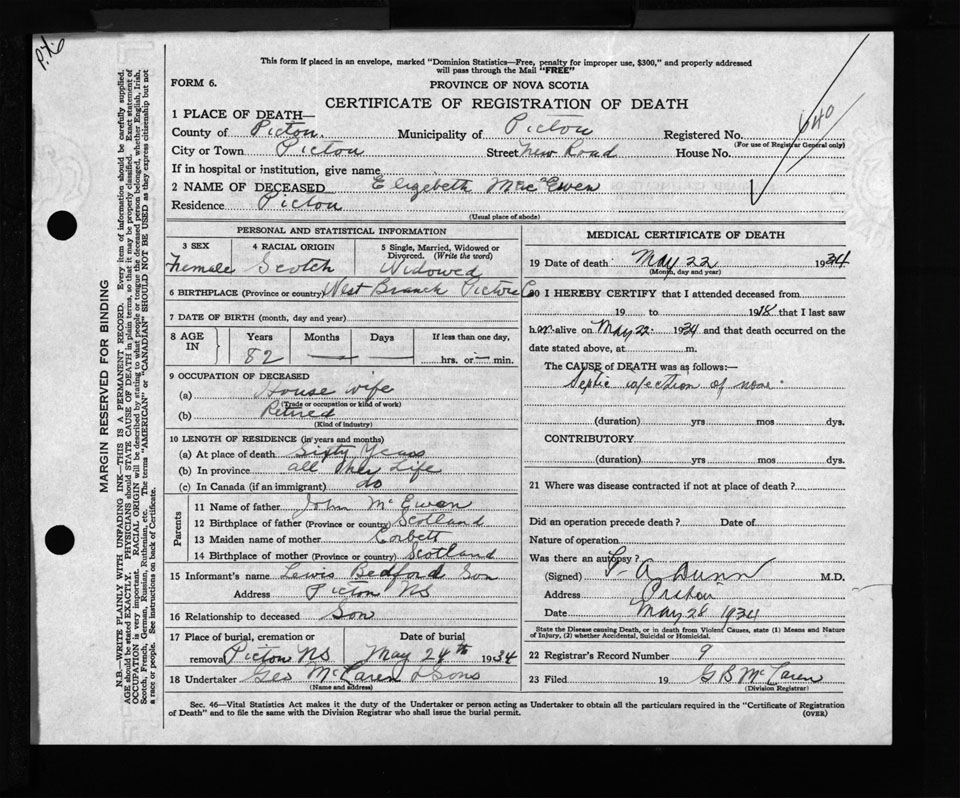 P.76
This form if placed in an envelope, marked "Dominion Statistics—Free, penalty for improper use, $300," and properly addressed
will pass through the Mail "FREE"
FORM 6.
PROVINCE OF NOVA SCOTIA
CERTIFICATE OF REGISTRATION OF DEATH
640
1 PLACE OF DEATH—
County of Pictou. Municipality of Pictou Registered No.
(For use of Registrar General only)
City or Town Pictou Street New Road House No.
If in hospital or institution, give name
2 NAME OF DECEASED Elizebeth MacEwen
Residence Pictou
(Usual place of abode)
PERSONAL AND STATISTICAL INFORMATION
3 SEX 4 RACIAL ORIGIN 5 Single, Married, Widowed or Divorced. (Write the word)
Female Scotch Widowed
6 BIRTHPLACE (Province or country) West Branch Pictou Co
7 DATE OF BIRTH (month, day and year)
8 AGE IN Years Months Days If less than one day,
82 — — hrs. or — min.
9 OCCUPATION OF DECEASED
(a) House wife
(Trade or occupation or kind of work)
(b) Retired
(Kind of industry)
10 LENGTH OF RESIDENCE (in years and months)
(a) At place of death Sixty Years
(b) In province all Life
(c) In Canada (if an immigrant) do
Parents
11 Name of father John McEwen
12 Birthplace of father (Province or country) Scotland
13 Maiden name of mother Corbett
14 Birthplace of mother (Province or country) Scotland
15 Informant's name Lewis Bedford Son
Address Pictou NS
16 Relationship to deceased Son
17 Place of burial, cremation or Date of burial
removal Pictou NS May 24th 1934
18 Undertaker Geo McLaren & Sons
(Name and address)
MEDICAL CERTIFICATE OF DEATH
19 Date of death May 22 1934
(Month, day and year)
20 I HEREBY CERTIFY that I attended deceased from
19 to 1918 that I last saw
her alive on May 22 1934 and that death occurred on
date stated above, at m.
The CAUSE of DEATH was as follows:—
Septic infection of nose
(duration) yrs mos dys.
CONTRIBUTORY
(duration) yrs mos dys.
21 Where was disease contracted if not at place of death?
Did an operation precede death? Date of
Nature of operation
Was there an autopsy?
(Signed) A Dunn M.D.
Address Pictou
Date May 28 1934
State the Disease causing Death, or in death from Violent Causes, state (1) Means and Nature
of Injury, (2) whether Accidental, Suicidal or Homicidal.
22 Registrar's Record Number 9
23 Filed 19 GB McLaren
(Division Registrar)
Sec. 46—Vital Statistics Act makes it the duty of the Undertaker or person acting as Undertaker to obtain all the particulars required in the "Certificate of Registration
of Death" and to file the same with the Division Registrar who shall issue the burial permit.
(OVER)
MARGIN RESERVED FOR BINDING
N.B.—WRITE PLAINLY WITH UNFADING INK—THIS IS A PERMANENT RECORD. Every item of information should be carefully supplied.
AGE should be stated EXACTLY. PHYSICIANS should STATE CAUSE OF DEATH in plain terms, so that it may be properly classified. Exact statement of
OCCUPATION is very important. RACIAL ORIGIN will be described by stating to what people or tongue the deceased person belonged, whether English, Irish,
Scotch, French, German, Russian, Ruthenian, etc. The terms "AMERICAN" or "CANADIAN" SHOULD NOT BE USED as they express citizenship but not
a race or people. See instructions on back of Certificate.